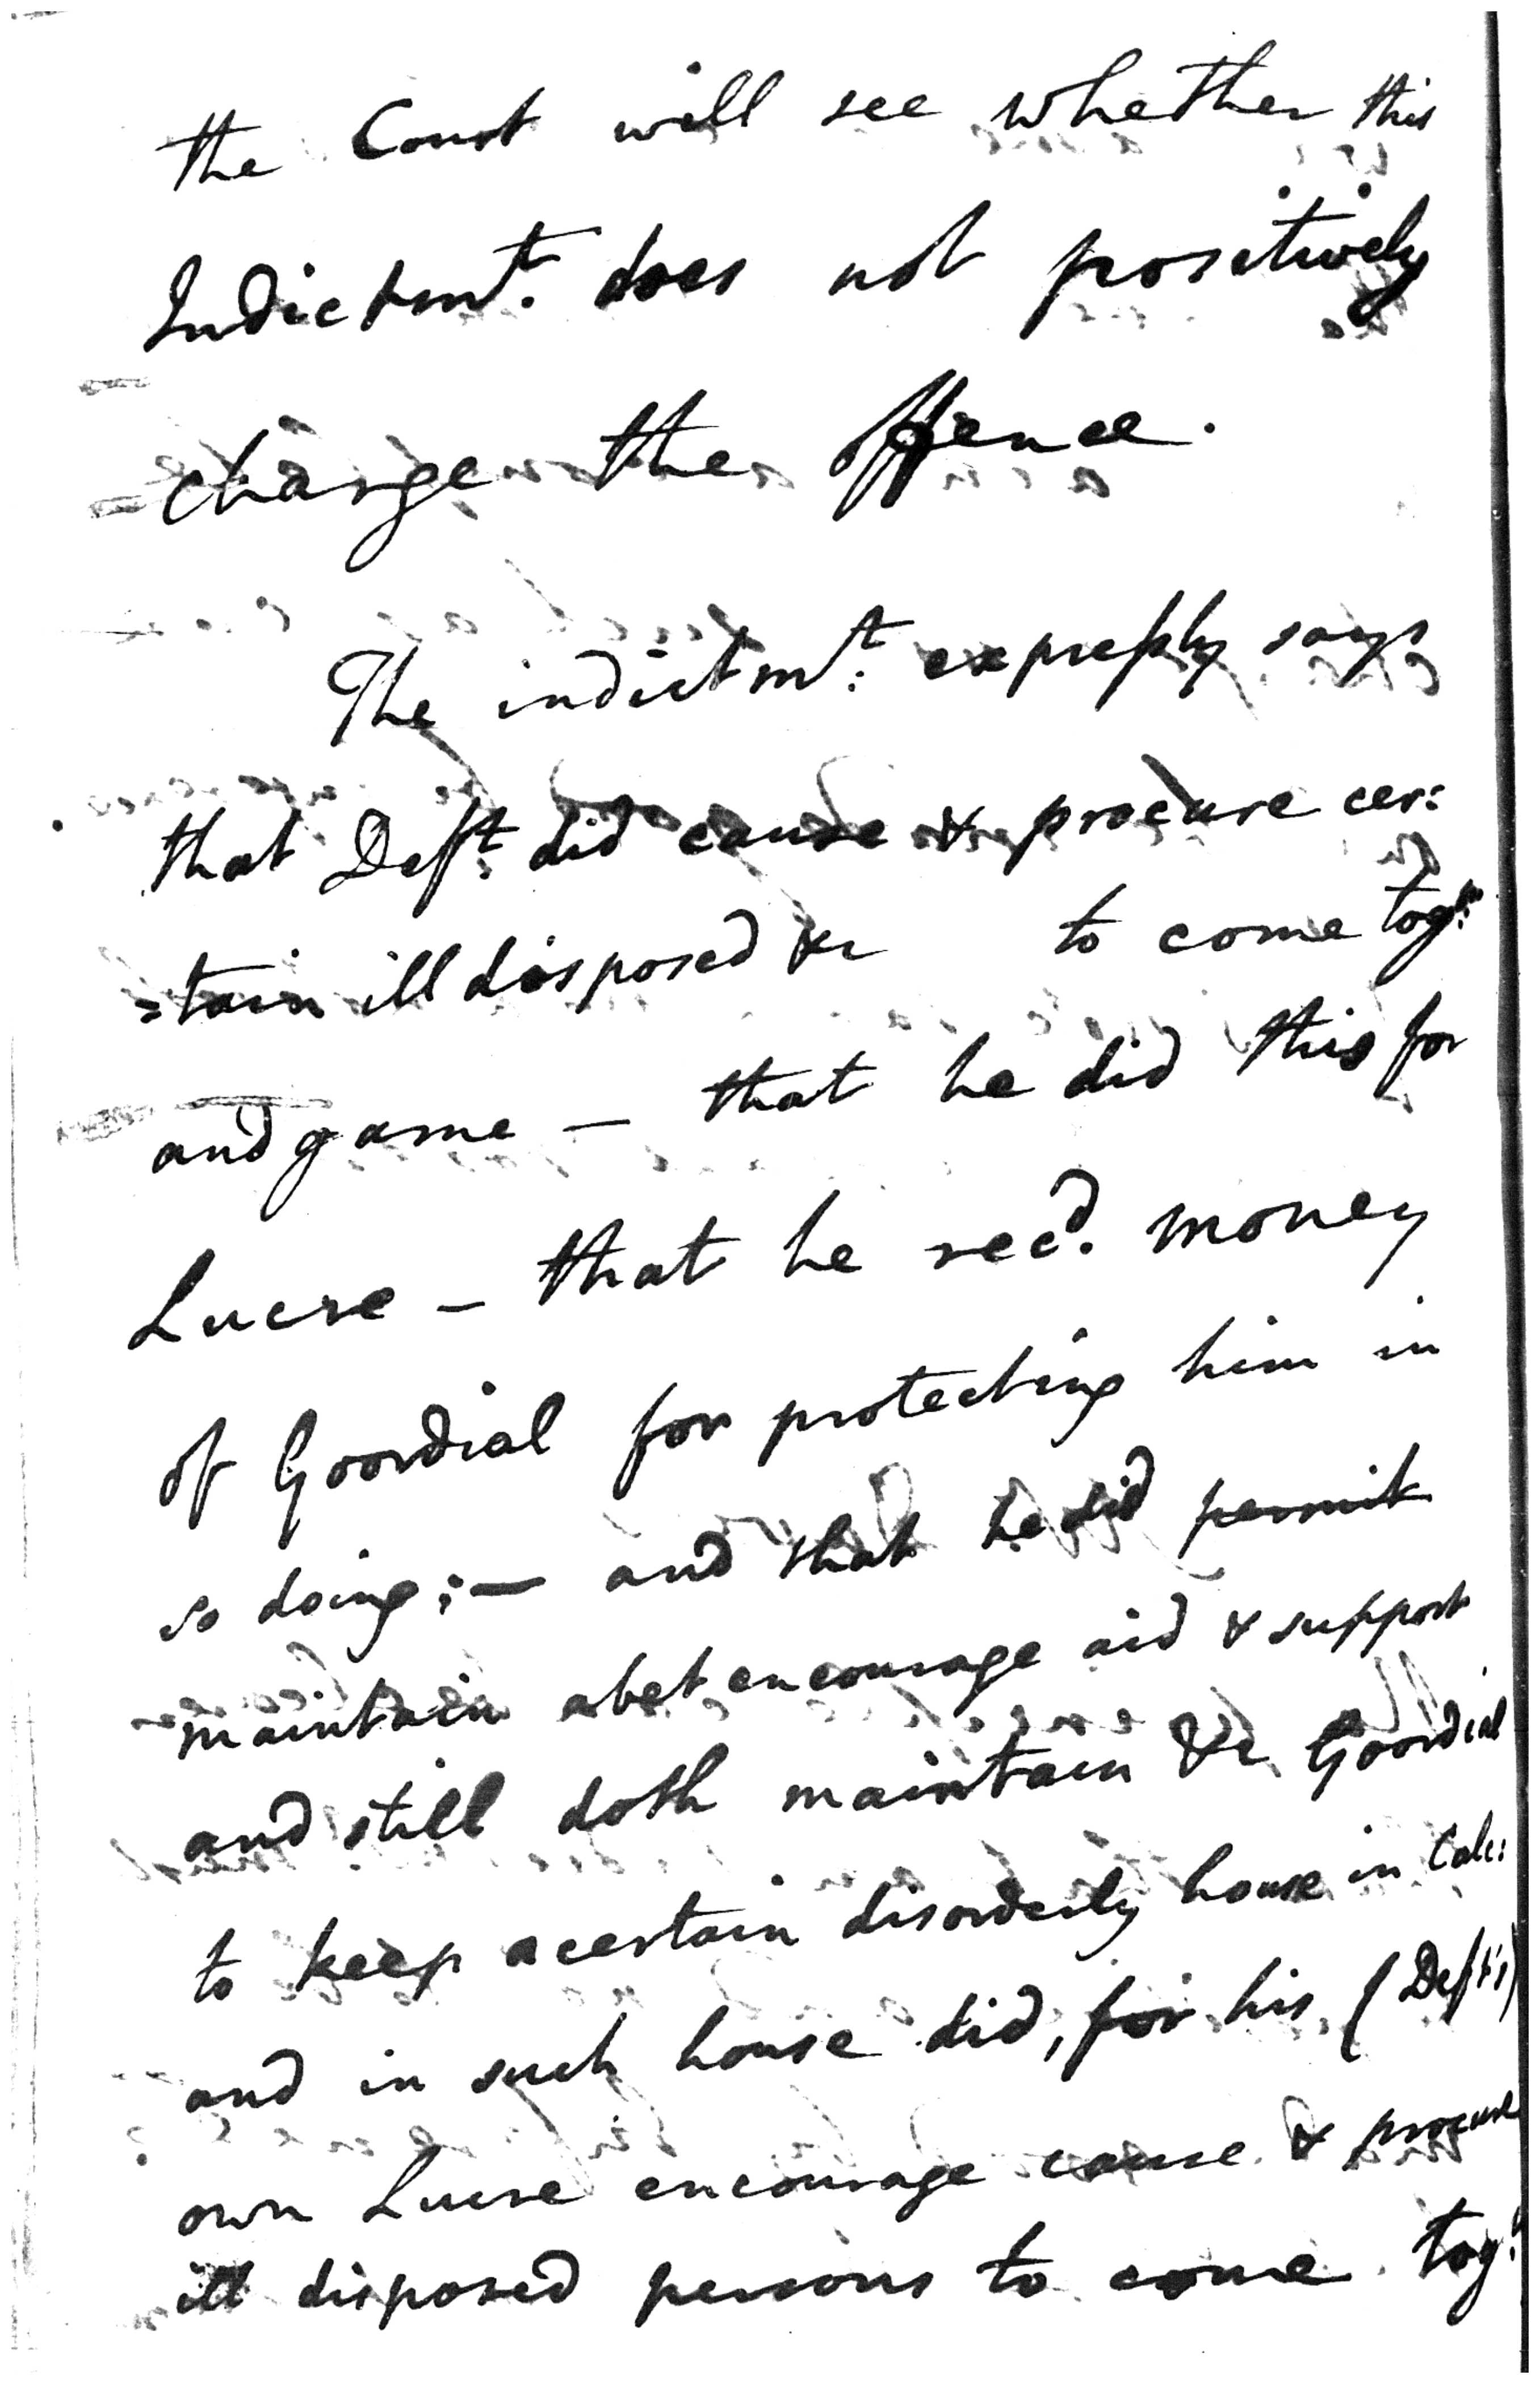 the Court will see whether this
Indictmt. does not positively
charge the offence.
The indictmt. expressly says
that Deft. did cause & procure cer:
=tain ill disposed &c to come togr.
and game – that he did this for
Lucre – that he recd. money
of Goordial for protecting him in
so doing; – and that he did permit
maintain abet encourage aid & support
and still doth maintain &c Goordial
to keep a certain disorderly house in Calc:
and in such house did, for his (Deft's)
own Lucre encourage cause & procure
ill disposed persons to come togr.